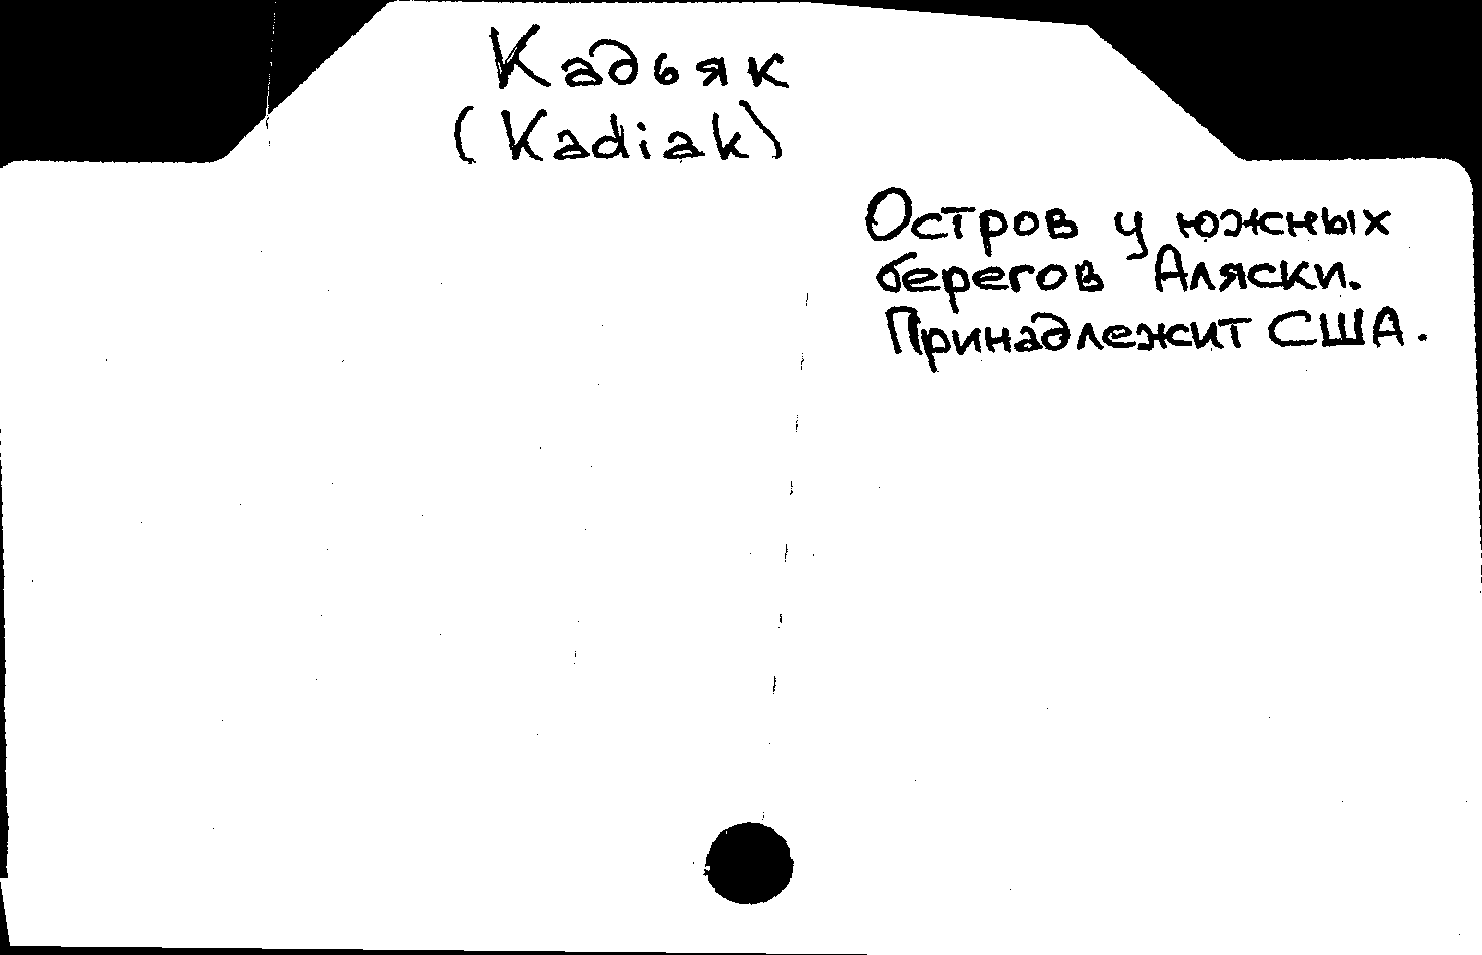 Кадьяк
(Kadiak)
Остров у южных
берегов Аляски.
Принадлежит США.